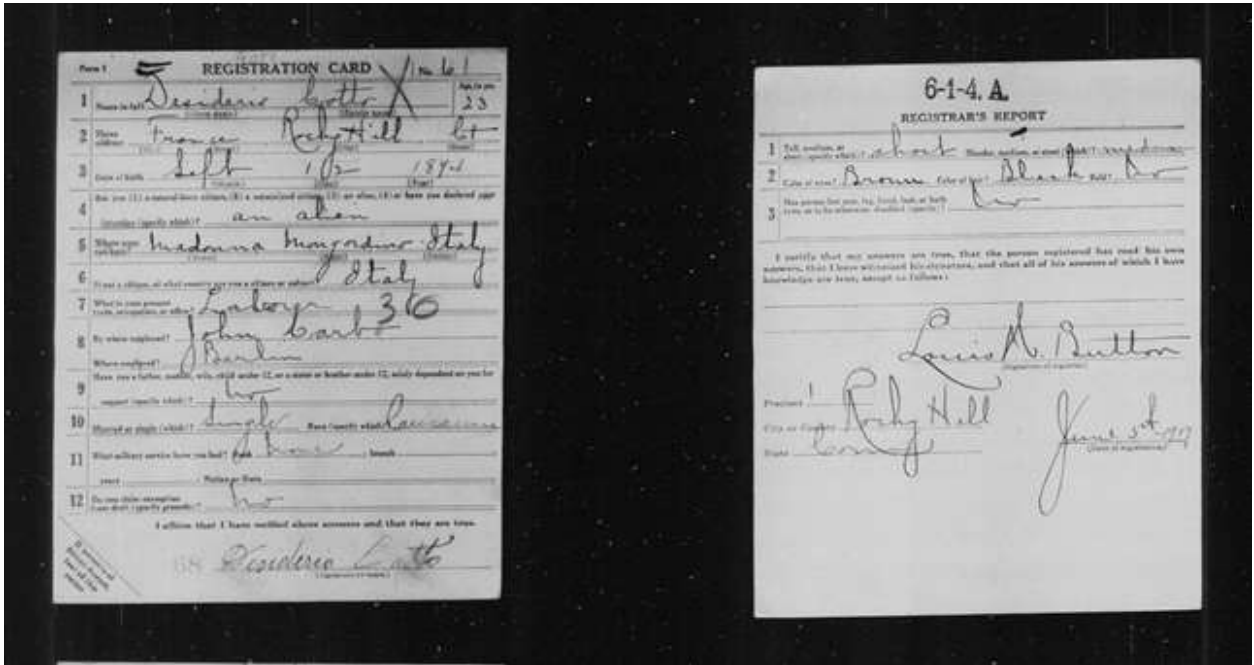 Form 1 REGISTRATION CARD No 61
1 Name in full Desiderio Cotto Age, in yrs. 23
(Given name) (Family name)
2 Home address France Rocky Hill Ct
3 Date of birth Sept 12 1894
(Month) (Day) (Year)
4 Are you (1) a natural-born citizen, (2) a naturalized citizen, (3) an alien, (4) or have you declared your
intention (specify which)? an alien
5 Where were you born? Madonna Mongardino Italy
(Town) (State) (Nation)
6 If not a citizen, of what country are you a citizen or subject? Italy
7 What is your present trade, occupation, or office? Laborer 36
8 By whom employed? John Carbo
Where employed? Berlin
9 Have you a father, mother, wife, child under 12, or a sister or brother under 12, solely dependent on you for
support (specify which)? No
10 Married or single (which)? Single Race (specify which)? Caucasian
11 What military service have you had? Rank None ; branch
years ; Nation or State
12 Do you claim exemption from draft (specify grounds)? No
I affirm that I have verified above answers and that they are true.
68 Desiderio Cotto
(Signature or mark)
If person is of African descent, tear off this corner
6-1-4. A.
REGISTRAR'S REPORT
1 Tall, medium, or short (specify which)? short Slender, medium, or stout (which)? medium
2 Color of eyes? Brown Color of hair? Black Bald? No
3 Has person lost arm, leg, hand, foot, or both eyes, or is he otherwise disabled (specify)? No
I certify that my answers are true, that the person registered has read his own
answers, that I have witnessed his signature, and that all of his answers of which I have
knowledge are true, except as follows:
Louis N. Button
(Signature of registrar)
Precinct 1
City or County Rocky Hill
State Conn
June 5th 1917
(Date of registration)